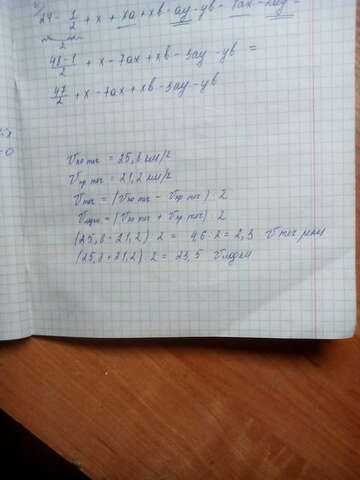 24 - 1/2 + x + xa + xb - ay - yb - 8ax - 2ay =
48-1/2 + x - 7ax + xb - 3ay - yb =
47/2 + x - 7ax + xb - 3ay - yb
Vпо теч = 25,8 км/г
Vпр теч = 21,2 км/г
Vтеч = (Vпо теч - Vпр теч) : 2
Vлодки = (Vпо теч + Vпр теч) : 2
(25,8 - 21,2) : 2 = 4,6 : 2 = 2,3 Vтеч реки
(25,8 + 21,2) : 2 = 23,5 Vлодки